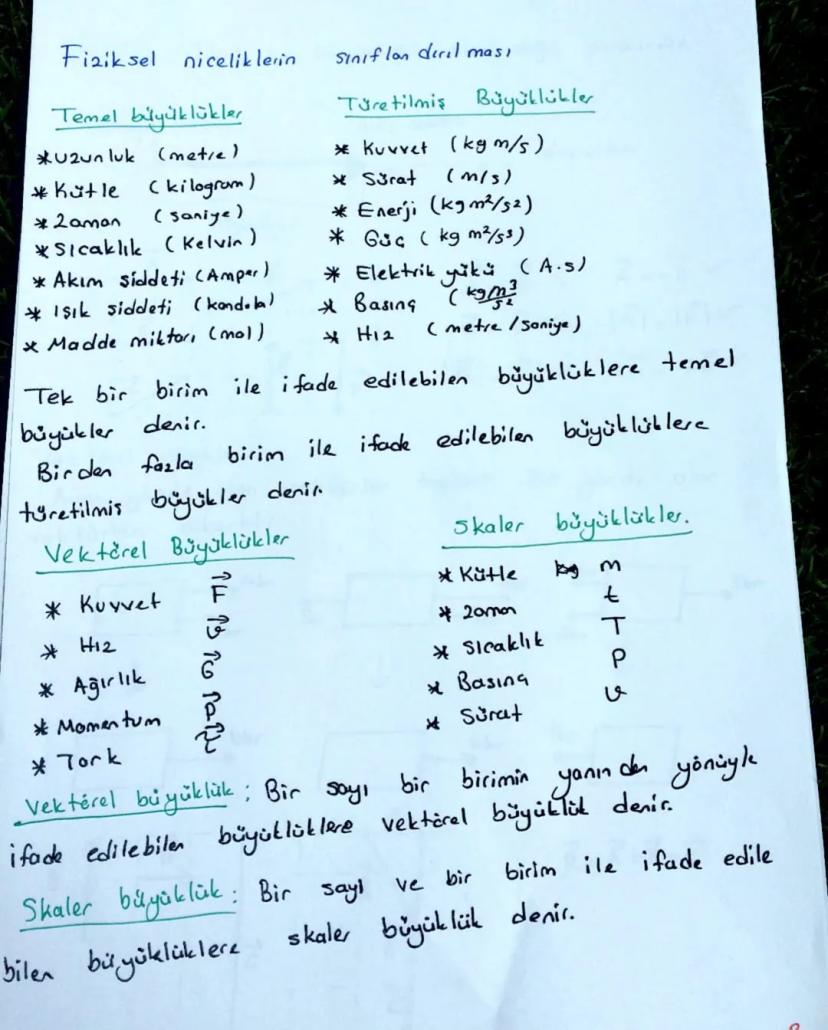 Fiziksel niceliklerin sınıflandırılması
Temel büyüklükler
Türetilmiş Büyüklükler
* Uzunluk (metre)
* Kütle (kilogram)
* Zaman (saniye)
* Sıcaklık (Kelvin)
* Akım şiddeti (Amper)
* Işık şiddeti (kandela)
* Madde miktarı (mol)
* Kuvvet (kg m/s)
* Sürat (m/s)
* Enerji (kg m²/s²)
* Güç (kg m²/s³)
* Elektrik yükü (A.s)
* Basınç (kg m³/s²
* Hız (metre/saniye)
Tek bir birim ile ifade edilebilen büyüklüklere temel
büyükler denir.
Birden fazla birim ile ifade edilebilen büyüklüklere
türetilmiş büyükler denir.
Vektörel Büyüklükler
* Kuvvet F⃗
* Hız v⃗
* Ağırlık G⃗
* Momentum p⃗
* Tork τ⃗
Skaler büyüklükler.
* Kütle m
* Zaman t
* Sıcaklık T
* Basınç P
* Sürat v
Vektörel büyüklük : Bir sayı bir birimin yanında yönüyle
ifade edilebilen büyüklüklere vektörel büyüklük denir.
Skaler büyüklük : Bir sayı ve bir birim ile ifade edile
bilen büyüklüklere skaler büyüklük denir.